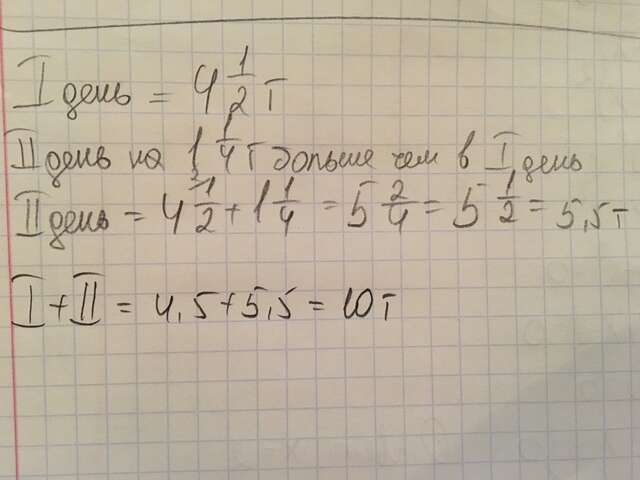 I день = 4 1/2 т
II день на 1 1/4 т больше чем в I день
II день = 4 1/2 + 1 1/4 = 5 2/4 = 5 1/2 = 5,5 т
I + II = 4,5 + 5,5 = 10 т